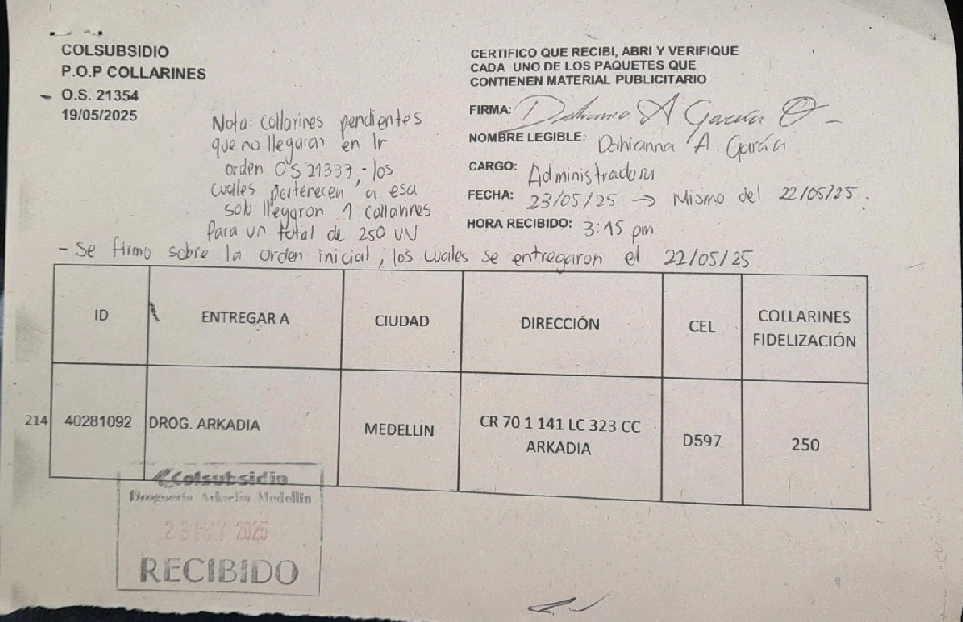 COLSUBSIDIO
P.O.P COLLARINES
O.S. 21354
19/05/2025
Nota: collarines pendientes
que no llegaron en la
orden OS 21337, - los
cuales pertenecen, a esa
sob llegaron 1 collarines
para un total de 250 UN
- Se firmo sobre la orden inicial, los cuales se entregaron el 22/05/25
CERTIFICO QUE RECIBI, ABRI Y VERIFIQUE
CADA UNO DE LOS PAQUETES QUE
CONTIENEN MATERIAL PUBLICITARIO
FIRMA: Dahianna A García O
NOMBRE LEGIBLE: Dahianna A García
CARGO: Administradora
FECHA: 23/05/25 → Mismo del 22/05/25.
HORA RECIBIDO: 3:15 pm
ID ENTREGAR A CIUDAD DIRECCIÓN CEL COLLARINES FIDELIZACIÓN
214 40281092 DROG. ARKADIA MEDELLIN CR 70 1 141 LC 323 CC ARKADIA D597 250
Colsubsidio
Droguería Arkadia Medellín
23 MAY 2025
RECIBIDO